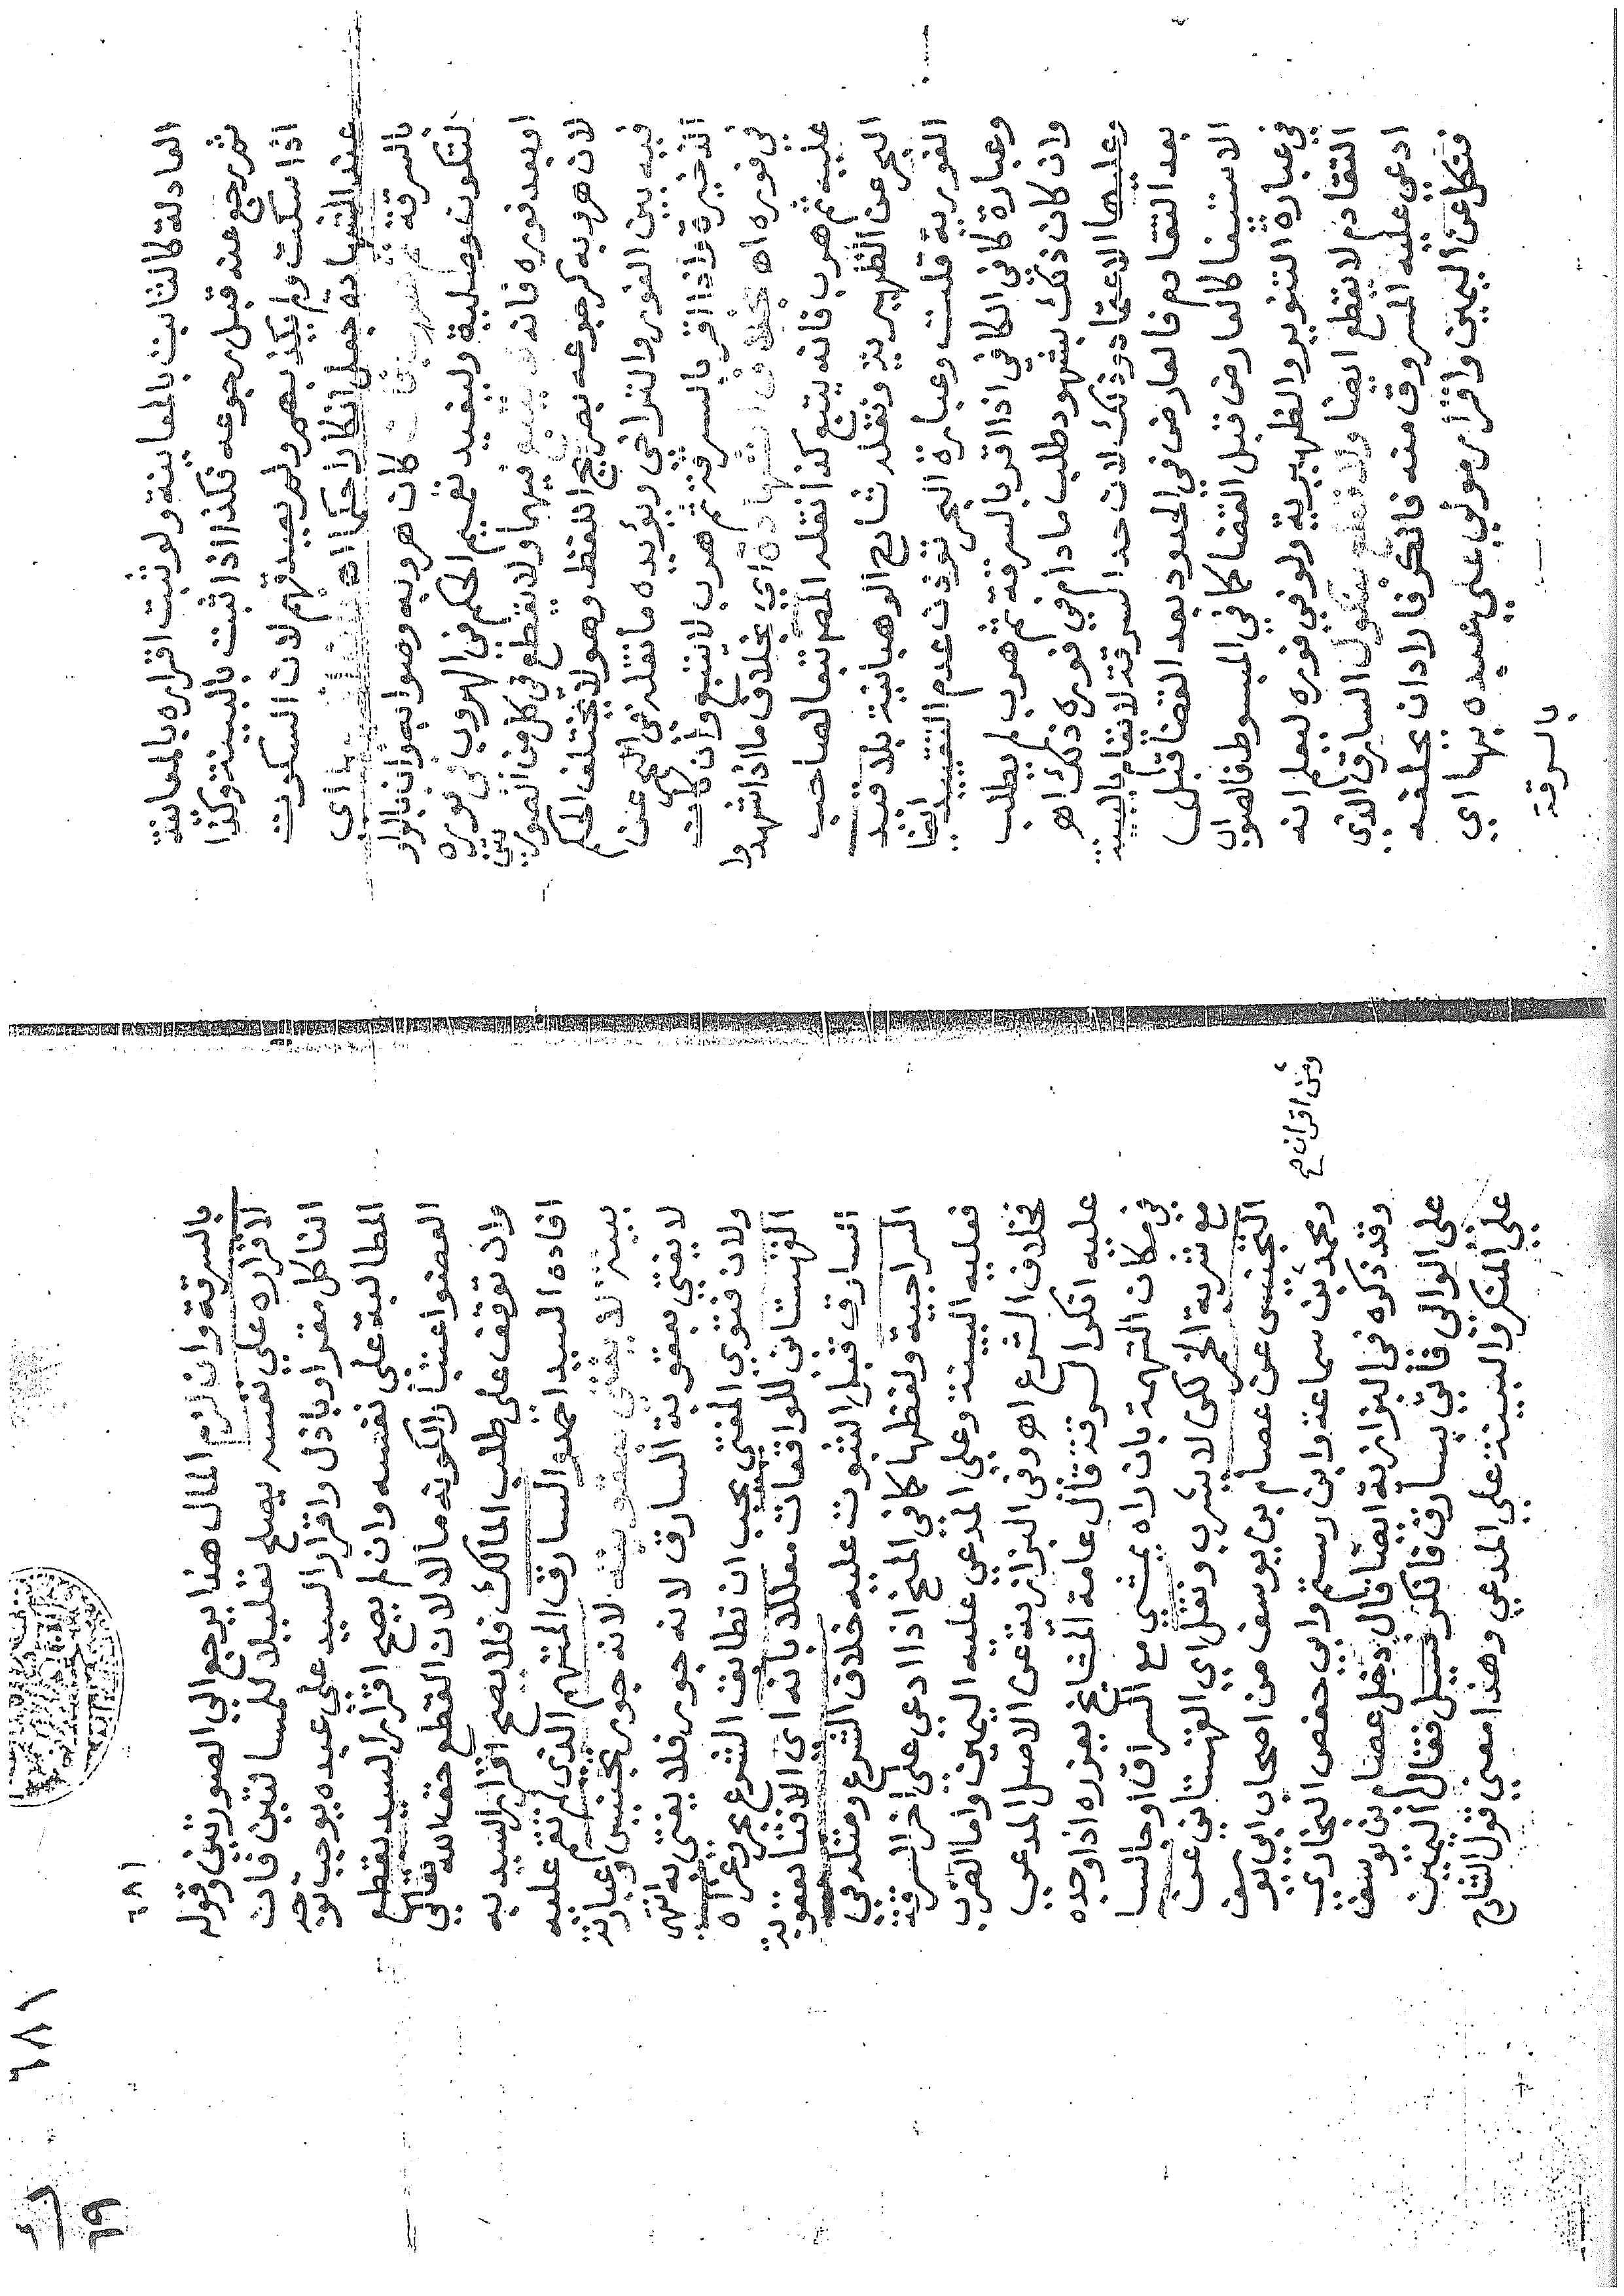 العادلة كالثابت بالمعاينة ولو ثبت اقراره بالمعاينة
ثم رجع عنه قبل رجوعه فكذا اذا ثبت بالبينة وكذا
اذا سكت ولم يكذبهم ولم يصدقهم لان السكوت
عند الشهادة جعل انكارا حكما اه
بالسرقة ثم كان هروبه وصوابه وان بالواو
لتكون وصلية وليفيد تعميم الحكم في الهروب في فوره
او بعد فوره فانه لا يتبع فيهما ولا يقطع في كل من الصورتين
لان هروبه كرجوعه بصريح اللفظ وهو لا يختلف الحكم
فيه بين الفور والتراخي ويؤيده ما نقله في البحر عن
الذخيرة واذا اقر بالسرقة ثم هرب لا يتبع وان كان
في فوره اه بخلاف الشهادة اي بخلاف ما اذا شهدوا
عليه ثم هرب فانه يتبع كذا نقله المص تبعا لصاحب
البحر عن الظهيرية ونقله شارح الوهبانية بلا قيد
الفورية قلت وعبارة البحر تفيد عدم التقييد ايضا
وعبارة كافي الكافي اذا اقر بالسرقة ثم هرب لم يطلب
وان كان ذلك بشهود طلب مادام في فوره ذلك اه
وعليها الاعتماد وذلك لان حد السرقة لا تقام بالبينة
بعد التقادم فالعارض في الحدود بعد القضا قبل
الاستيفا كالعارض قبل القضا كما في المبسوط فالصواب
في عبارة التنوير والظهيرية ولو في فوره ليعلم انه
التقادم لا يقطع ايضا ولا قطع بنكول السارق الذي
ادعى عليه المسروق منه فانكر فاراد ان يحلفه
فنكل عن اليمين واقرار مولى على عبده بها اي
بالسرقة
٦٨١
٦٨١
بالسرقة وان لزم المال هذا يرجع الى الصورتين وقوله
لاقراره على نفسه يصلح تعليلا للمسالتين فان
الناكل مقر او باذل واقرار السيد على عبده يوجب توجه
المطالبة على نفسه وان لم يصح اقرار السيد بقطع
العضو اعتبارا لكونه مالا لان القطع حق الله تعالى
وان توقف على طلب المالك فلا يصح اقرار السيد به
افاده السيد احملوا السارق المتهم الذي لم تقم عليه
بينة لا يفتي بعقوبته لانه جور تجنيس وعبارته
لا يفتي بعقوبة السارق لانه جور فلا يفتى به انتهى
ولان فتوى المفتي يجب ان تطابق الشرع بحر وعزاه
القهستاني للواقعات معللا بانه اي الافتا بعقوبة
السارق قبل الثبوت عليه خلاف الشرع ومثله في
السراجية ولفظها كما في المنح اذا ادعى على اخر السرقة
فعليه البينة وعلى المدعى عليه اليمين واما الضرب
فخلاف الشرع اه وفي البزازية عن الاصل المدعى
عليه انكر السرقة قال عامة المشايخ يعزره اذا وجده
في مكان التهمة بان راه يمشي مع السراق او جالسا
مع شربة الخمر لكن لا يشرب ونقل اي القهستاني عن
التجنيس عن عصام بن يوسف من اصحاب ابي يوسف
ومن اقران صح
ومحمد بن سماعة وابن رستم وابي حفص البخاري
وقد ذكره في البزازية ايضا قال دخل عصام بن يوسف
على الوالي فاتي بسارق فانكر فسيل فقال اليمين
على المنكر والبينة على المدعي وهذا معنى قول الشارح